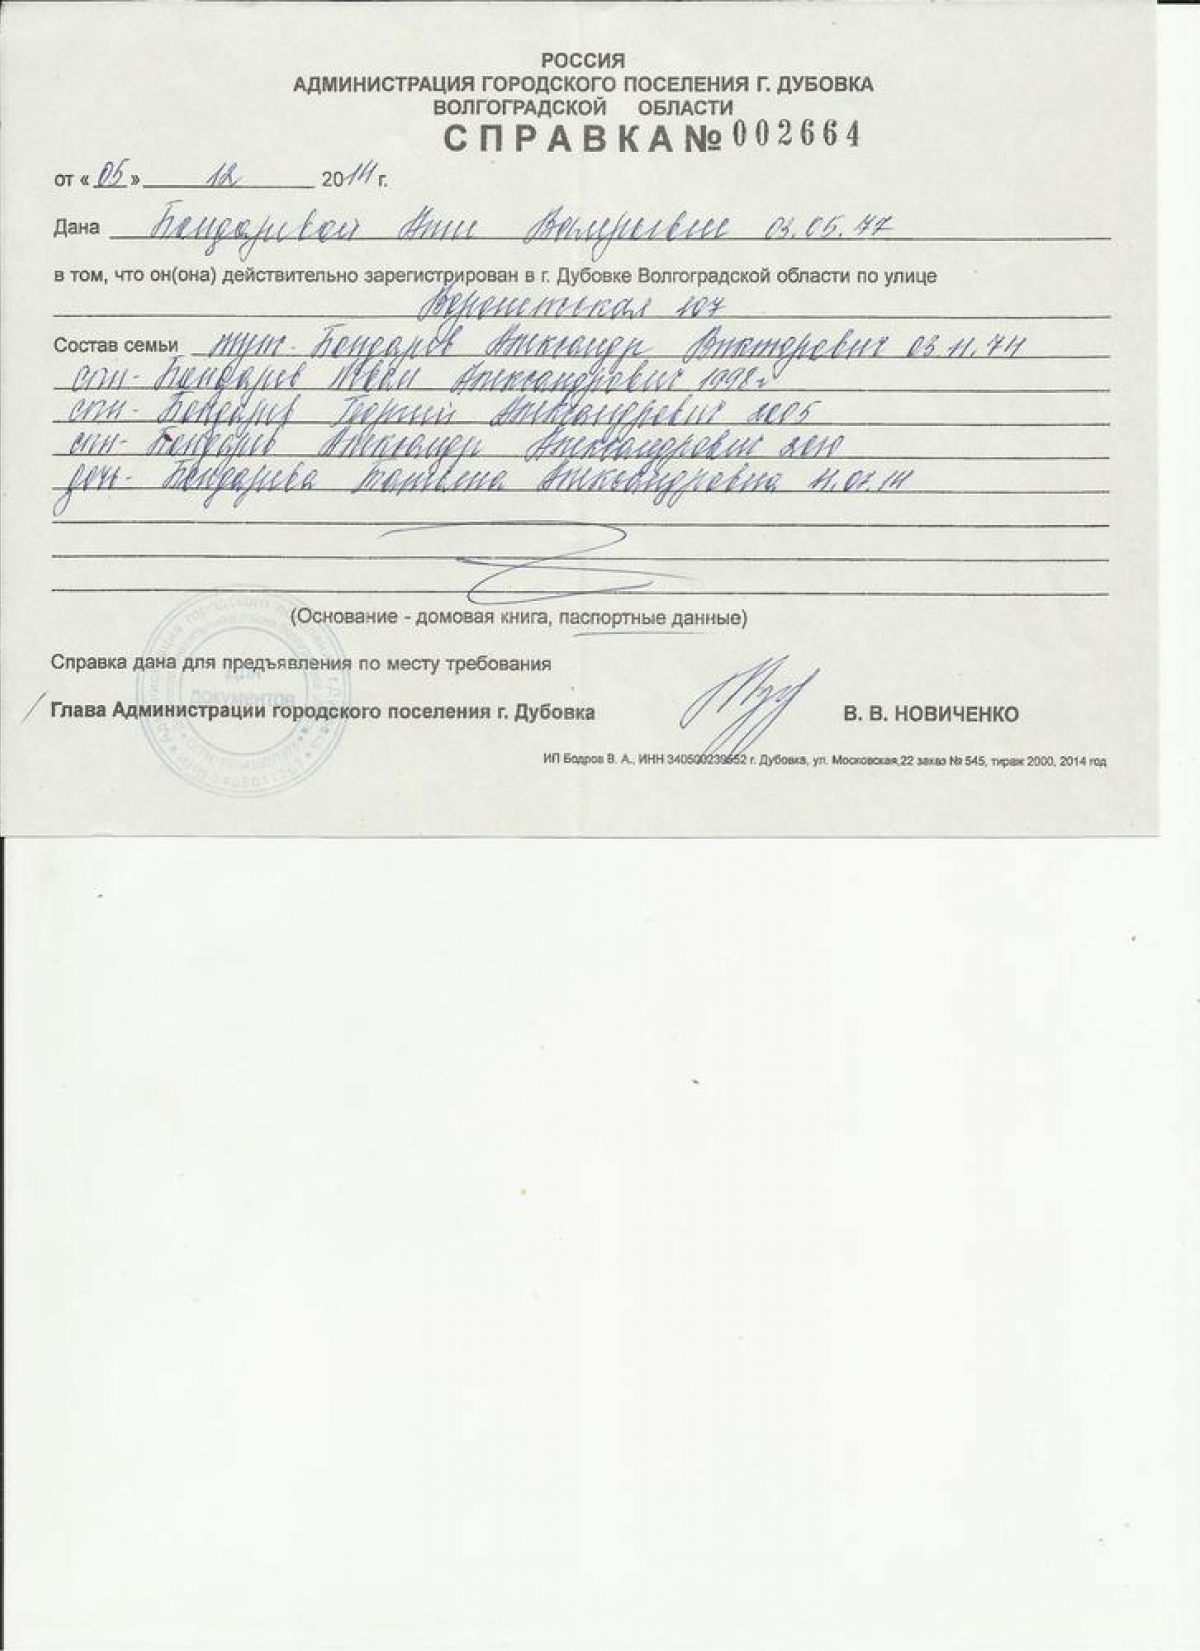 РОССИЯ
АДМИНИСТРАЦИЯ ГОРОДСКОГО ПОСЕЛЕНИЯ Г. ДУБОВКА
ВОЛГОГРАДСКОЙ ОБЛАСТИ
СПРАВКА № 002664
от «05» 12 2014 г.
Дана Бондаревой Анне Валерьевне 03.05.77
в том, что он(она) действительно зарегистрирован в г. Дубовке Волгоградской области по улице
107
Состав семьи муж - Бондарев Александр Викторович 03.11.74
сын - Бондарев Александрович 1998г
сын - Бондарев Георгий Александрович 2005
сын - Бондарев Александр Александрович 2010
дочь - Бондарева Татьяна Александровна 11.07.14
(Основание - домовая книга, паспортные данные)
Справка дана для предъявления по месту требования
ДЛЯ ДОКУМЕНТОВ
Глава Администрации городского поселения г. Дубовка В. В. НОВИЧЕНКО
ИП Бодров В. А., ИНН 340500239652 г. Дубовка, ул. Московская,22 заказ № 545, тираж 2000, 2014 год